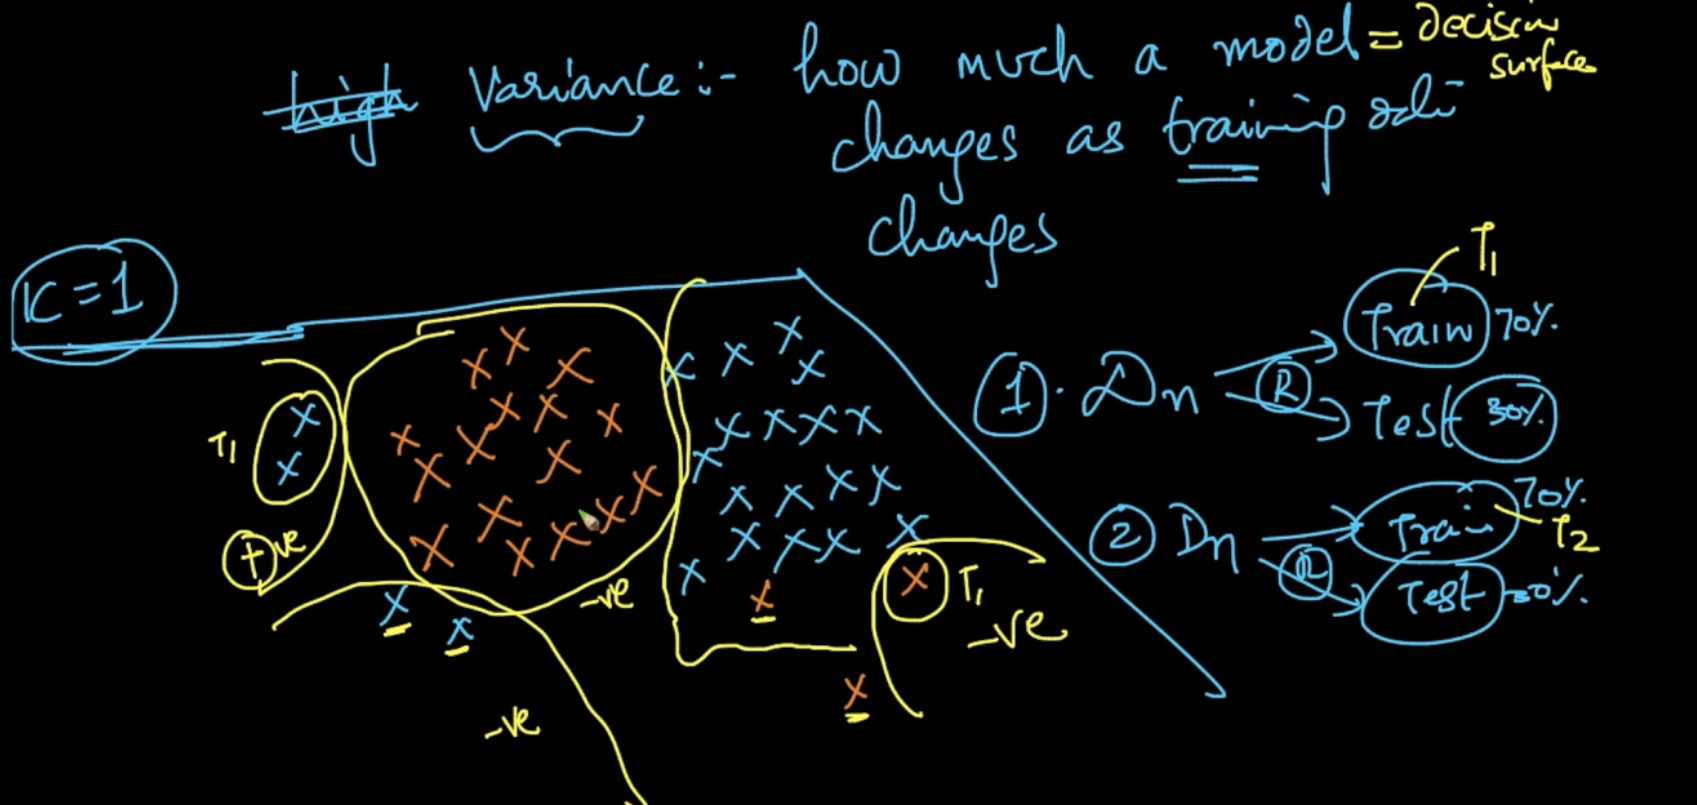 high Variance :- how much a model = decision surface
changes as training
changes
K=1
T1
+ve
-ve
-ve
T1
-ve
1. Dn
R
Train 70%
T1
Test 30%
2 Dn
R
Train 70%
T2
Test 30%